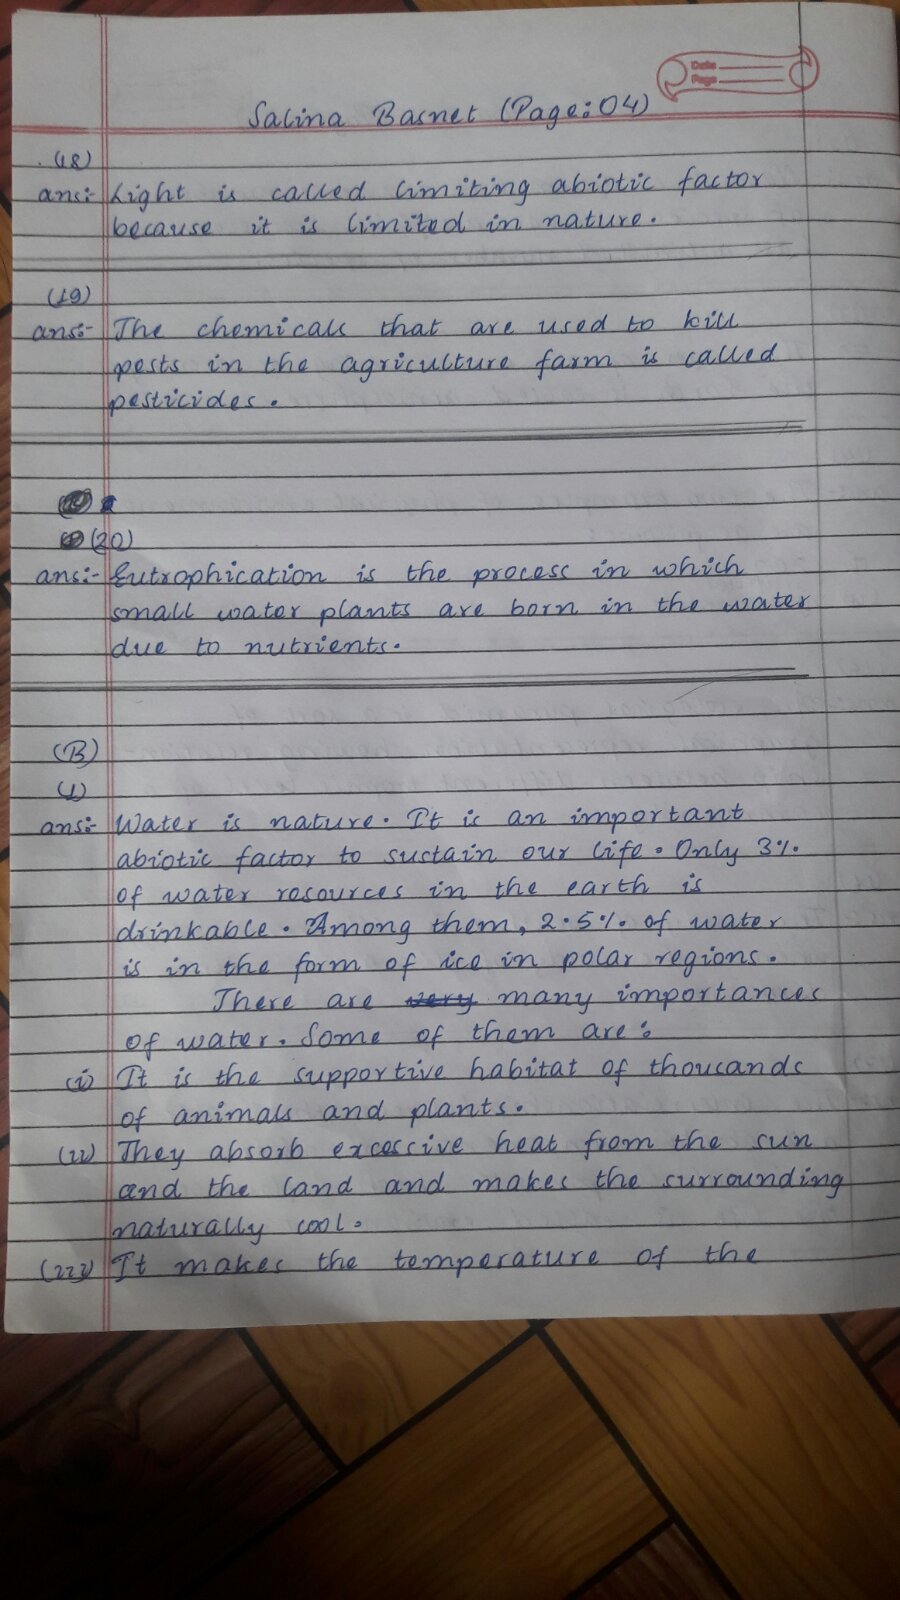 Date
Page
Salina Basnet (Page:04)
(18)
ans:- Light is called limiting abiotic factor
because it is limited in nature.
(19)
ans:- The chemicals that are used to kill
pests in the agriculture farm is called
pesticides.
(20)
ans:- Eutrophication is the process in which
small water plants are born in the water
due to nutrients.
(B)
(1)
ans:- Water is nature. It is an important
abiotic factor to sustain our life. Only 3%
of water resources in the earth is
drinkable. Among them, 2.5% of water
is in the form of ice in polar regions.
There are very many importances
of water. Some of them are:
(i) It is the supportive habitat of thousands
of animals and plants.
(ii) They absorb excessive heat from the sun
and the land and makes the surrounding
naturally cool.
(iii) It makes the temperature of the